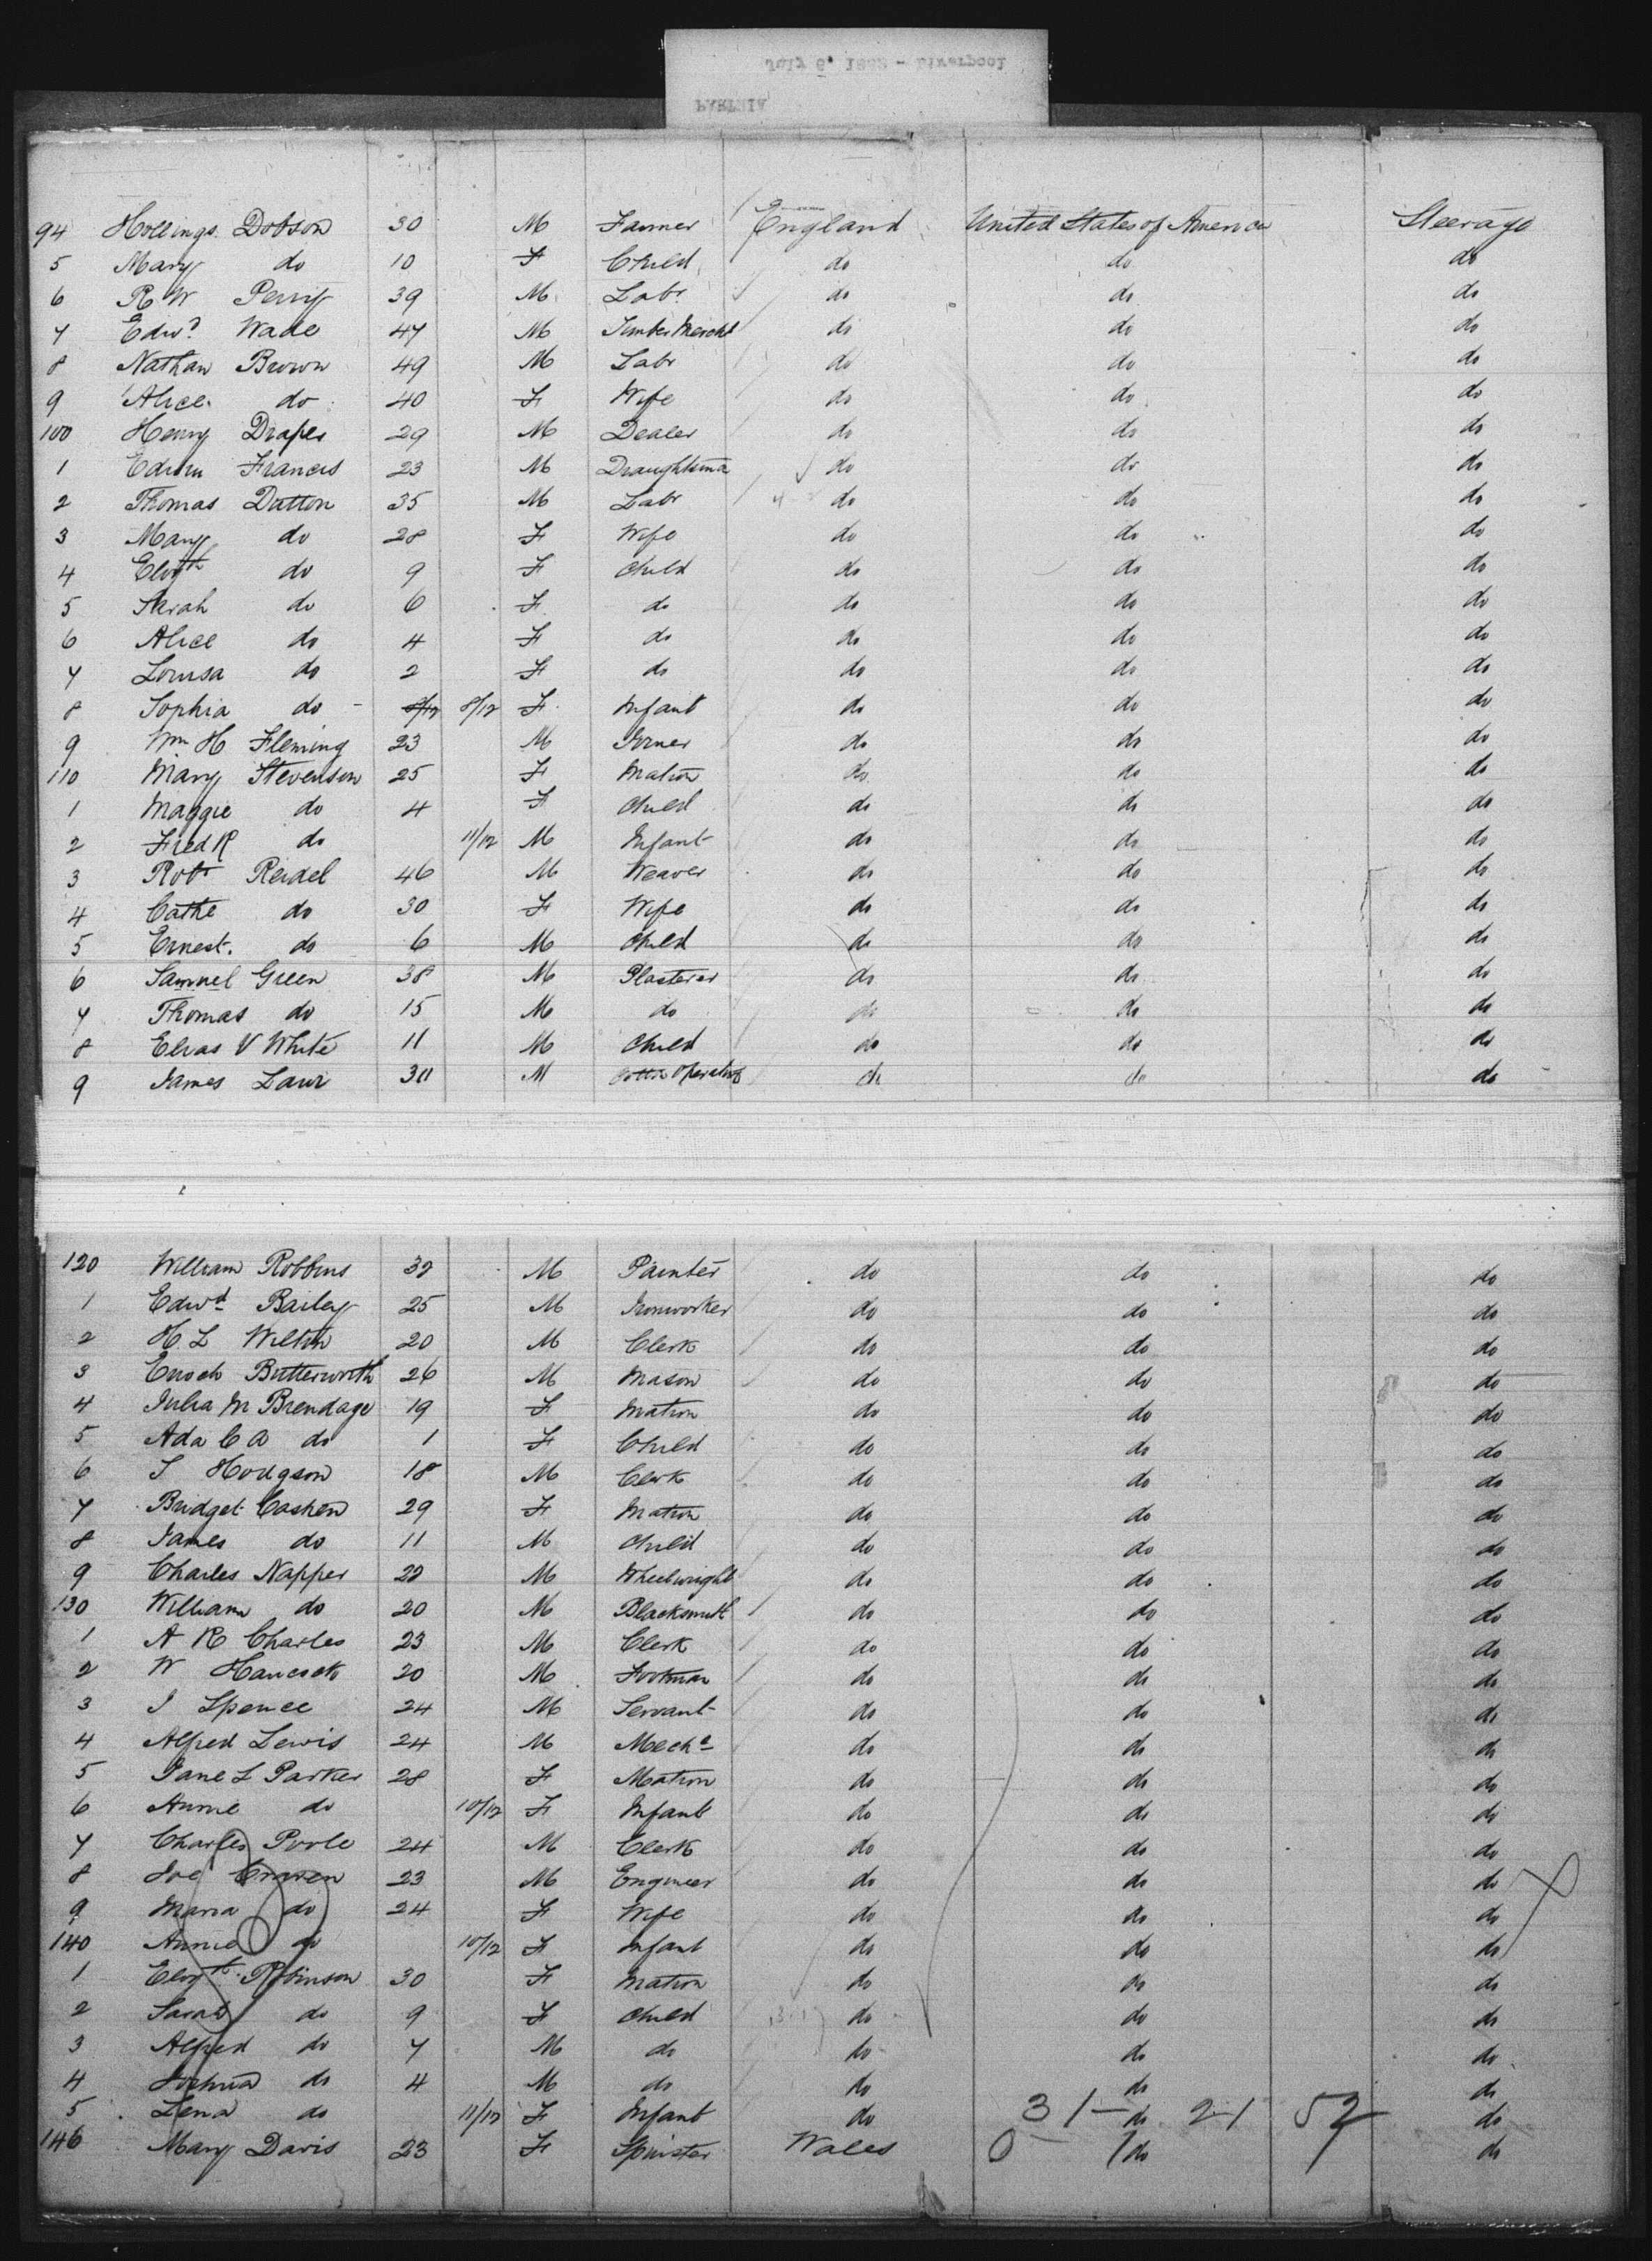 July 6, 1882 - Liverpool
PARTHIA
94 Hollings Dobson 30 M Farmer England United States of America Steerage
5 Mary do 10 F Child do do do
6 R W Perry 39 M Labr do do do
7 Edwd Wade 47 M Timber Mercht do do do
8 Nathan Brown 49 M Labr do do do
9 Alice do 40 F Wife do do do
100 Henry Draper 29 M Dealer do do do
1 Edwin Francis 23 M Draughtsma do do do
2 Thomas Dutton 35 M Labr do do do
3 Mary do 28 F Wife do do do
4 Elizth do 9 F Child do do do
5 Sarah do 6 F do do do do
6 Alice do 4 F do do do do
7 Louisa do 2 F do do do do
8 Sophia do 8/12 8/12 F Infant do do do
9 Wm H Fleming 23 M Joiner do do do
110 Mary Stevenson 25 F Matron do do do
1 Maggie do 4 F Child do do do
2 Fredk do 11/12 M Infant do do do
3 Robt Reidel 46 M Weaver do do do
4 Cathe do 30 F Wife do do do
5 Ernest do 6 M Child do do do
6 Samuel Green 38 M Plasterer do do do
7 Thomas do 15 M do do do do
8 Elias V White 11 M Child do do do
9 James Law 30 M Cotton Operative do do do
120 William Robbins 32 M Painter do do do
1 Edwd Bailey 25 M Ironworker do do do
2 H. L Wilton 20 M Clerk do do do
3 Enoch Butterworth 26 M Mason do do do
4 Julia M Brendage 19 F Matron do do do
5 Ada C A do 1 F Child do do do
6 Hodgson 18 M Clerk do do do
7 Bridget Cashen 29 F Matron do do do
8 James do 11 M Child do do do
9 Charles Napper 22 M Wheelwright do do do
130 William do 20 M Blacksmith do do do
1 A R Charles 23 M Clerk do do do
2 W Hancock 20 M Footman do do do
3 J Spence 24 M Servant do do do
4 Alfred Lewis 24 M Mechc do do do
5 Jane L Parker 28 F Matron do do do
6 Annie do 10/12 F Infant do do do
7 Charles Poole 24 M Clerk do do do
8 Joe Craven 23 M Engineer do do do
9 Maria do 24 F Wife do do do
140 Annie do 10/12 F Infant do do do
1 Elizth Robinson 30 F Matron do do do
2 Sarah do 9 F Child do do do
3 Alfred do 7 M do do do do
4 Joshua do 4 M do do do do
5 Lena do 11/12 F Infant do 31 - do 21 52 do
146 Mary Davis 23 F Spinster Wales 0 - 1 do 1 do